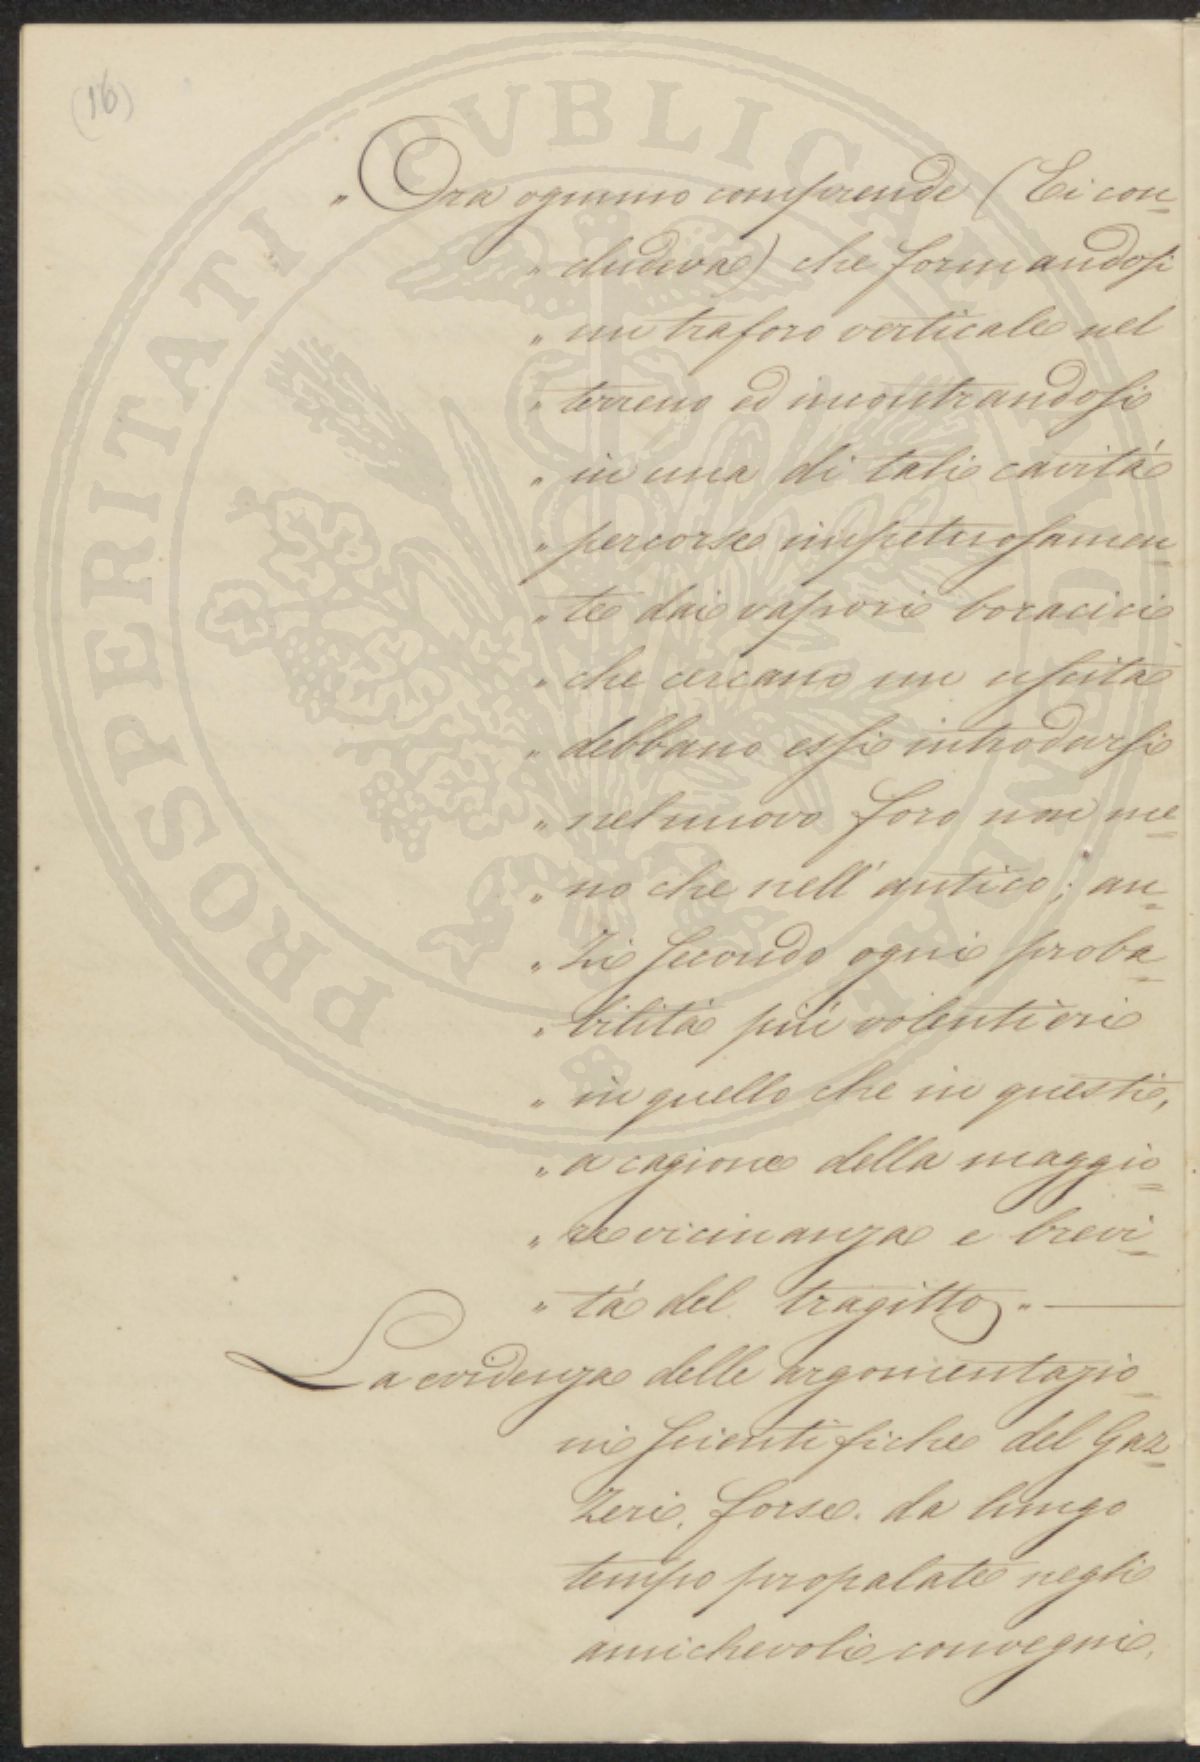 (16)
„ Ora ognuno comprende (Ei con=
„ cludeva) che formandosi
„ un traforo verticale nel
„ terreno ed incontrandosi
„ in una di tali cavità
„ percorse impetuosamen=
„ te dai vapori boracici
„ che cercano un uscita
„ debbano essi introdursi
„ nel nuovo foro non me=
„ no che nell' antico; an=
„ zi secondo ogni proba=
„ bilità più volentieri
„ in quello che in questi,
„ a cagione della maggio=
„ re vicinanza e brevi=
„ tà del tragitto „
La evidenza delle argomentazio=
ni scientifiche del Gaz=
zeri, forse da lungo
tempo propalate negli
amichevoli convegni,
PROSPERITATI PVBLICAE AVGENDAE